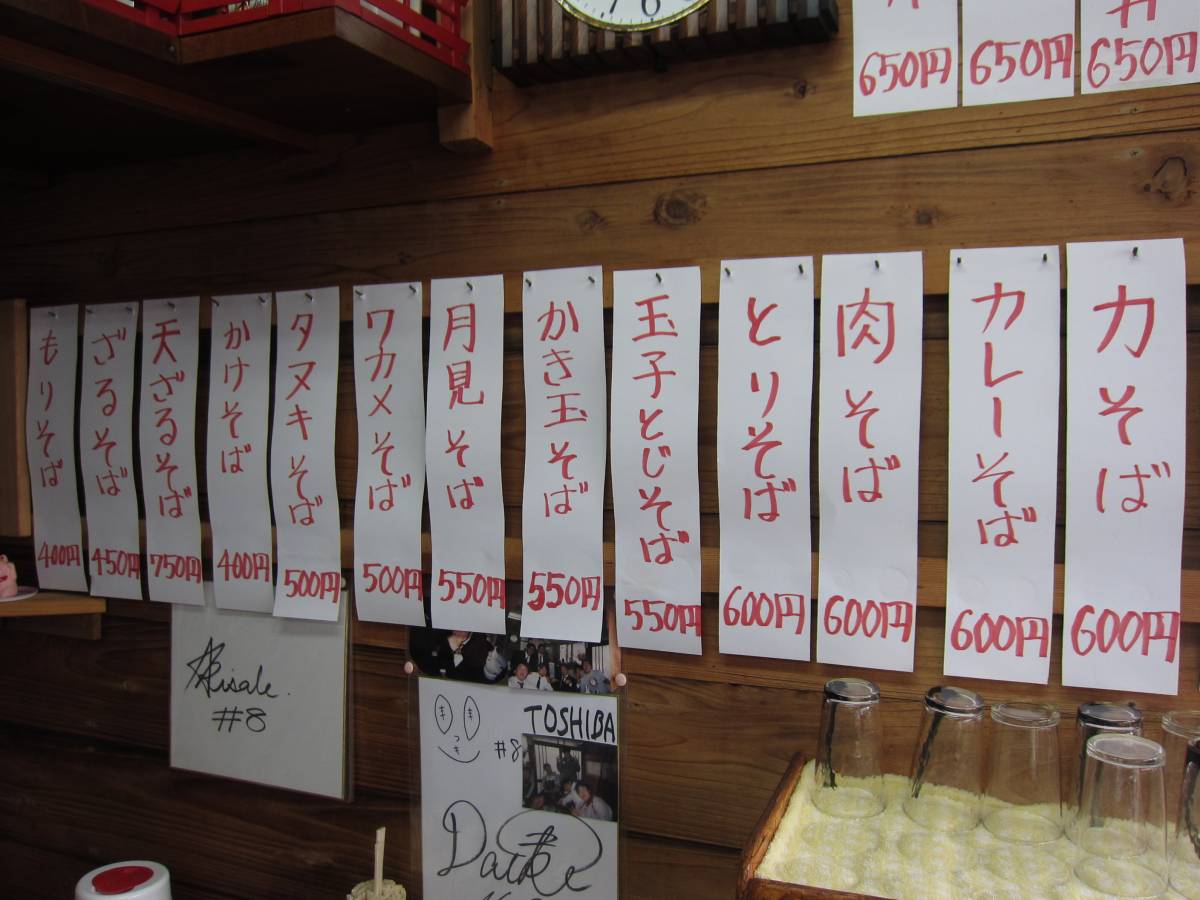 6
650円
650円
丼
650円
もりそば
400円
ざるそば
450円
天ざるそば
750円
かけそば
400円
タヌキそば
500円
ワカメそば
500円
月見そば
550円
かき玉そば
550円
玉子とじそば
550円
とりそば
600円
肉そば
600円
カレーそば
600円
力そば
600円
#8
TOSHIBA
#8